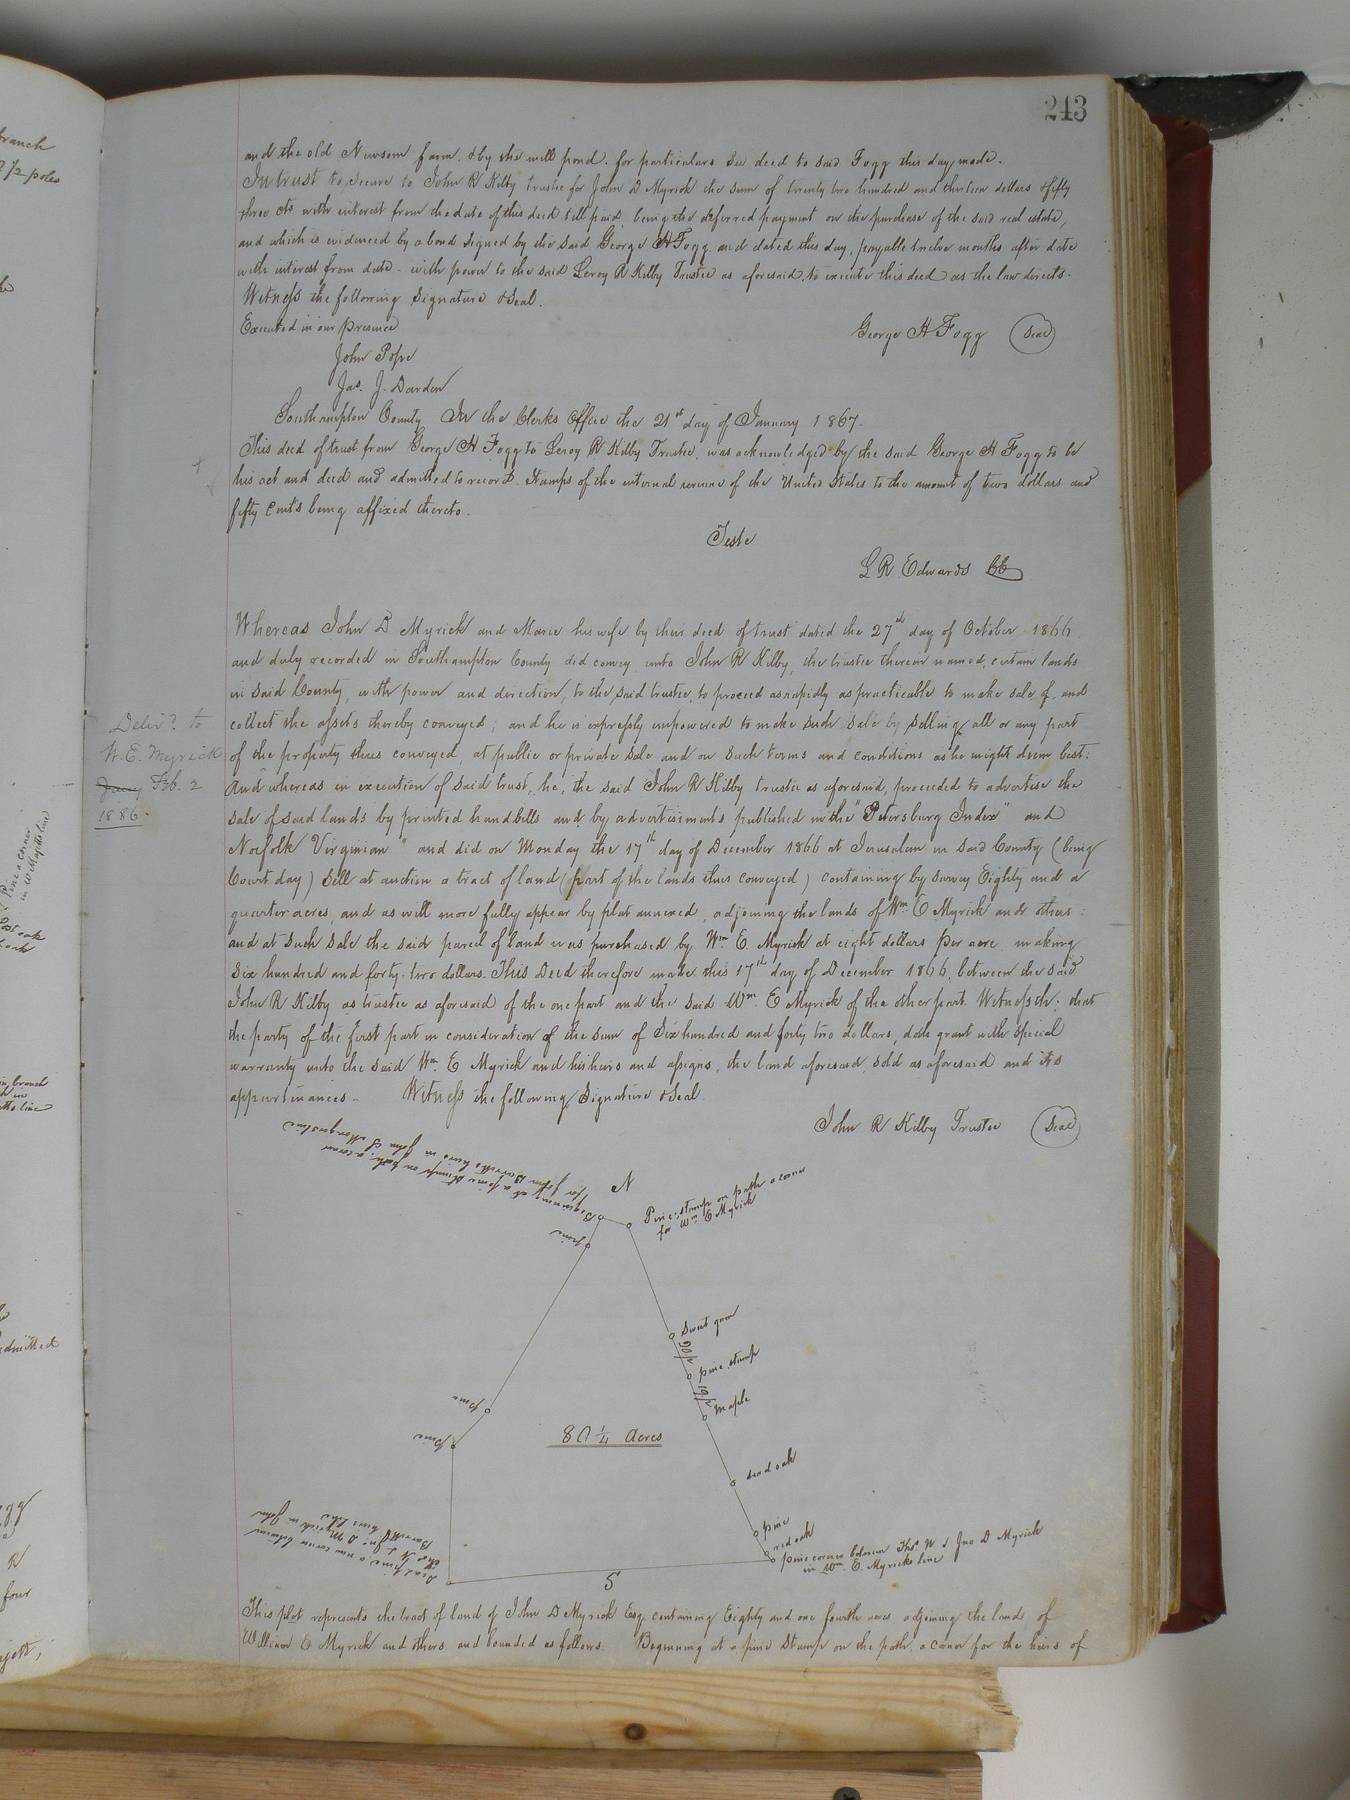 243
and the old Newsom farm, & by the mill pond. for particulars See deed to said Fogg this day made.
In trust to secure to John R Kilby trustee for John D Myrick the sum of twenty two hundred and thirteen dollars & fifty
three cts with interest from the date of this deed till paid, being the deferred payment on the purchase of the said real estate,
and which is evidenced by a bond signed by the said George H Fogg and dated this day, payable twelve months after date
with interest from date - with power to the said Leroy R Kilby Trustee as aforesaid, to execute this deed as the law directs.
Witness the following Signature & Seal.
Executed in our presence
George H Fogg (Seal)
John Pope
Jas. J. Darden
Southampton County In the Clerks Office the 21st day of January 1867.
This deed of trust from George H Fogg to Leroy R Kilby Trustee, was acknowledged by the said George H Fogg to be
his act and deed and admitted to record. Stamps of the internal revenue of the United States to the amount of two dollars and
fifty cents being affixed thereto.
Teste
L R Edwards CC
Whereas John D Myrick and Marie his wife by their deed of trust dated the 27th day of October 1866
and duly recorded in Southampton County did convey unto John R Kilby, the trustee therein named, certain lands
in said County, with power and direction, to the said trustee, to proceed as rapidly as practicable to make sale of, and
collect the assets thereby conveyed; and he is expressly empowered to make such sale by selling all or any part
of the property thus conveyed, at public or private sale and on such terms and conditions as he might deem best:
And whereas in execution of said trust, he, the said John R Kilby trustee as aforesaid, proceeded to advertise the
sale of said lands by printed handbills and by advertisements published in the "Petersburg Index" and
Norfolk Virginian" and did on Monday the 17th day of December 1866 at Jerusalem in said County (being
Court day) Sell at auction a tract of land (part of the lands thus conveyed) containing by survey Eighty and a
quarter acres, and as will more fully appear by plat annexed, adjoining the lands of Wm E Myrick and others:
and at such sale the said parcel of land was purchased by Wm E. Myrick at eight dollars per acre making
Six hundred and forty-two dollars. This Deed therefore made this 17th day of December 1866, between the said
John R Kilby as trustee as aforesaid of the one part and the said Wm. E Myrick of the other part. Witnesseth: that
the party of the first part in consideration of the sum of Six hundred and forty two dollars, doth grant with special
warranty unto the said Wm E Myrick and his heirs and assigns, the land aforesaid, sold as aforesaid and its
appurtenances - Witness the following Signature & Seal.
John R Kilby Trustee (Seal)
Deliv'd to
W. E. Myrick
Jany Feb. 2
1886.
Beginning at a pine stump on path, a corner
for John Barretts heirs in John S
N
Pine stump on path a corner
for Wm E Myrick
pine
Sweet gum
pine stump
Maple
pine
pine
80 1/4 Acres
dead oak
pine
red oak
pine corner between Thos. W & Jno D Myrick
in Wm. E. Myricks line
Dead pine, a new corner between
Thos W & Jno. D Myrick in John
Barretts heirs line
S
This plot represents the tract of land of John D Myrick Esq. containing Eighty and one fourth acres adjoining the lands of
William E Myrick and others and bounded as follows. Beginning at a pine Stump on the path, a corner for the heirs of